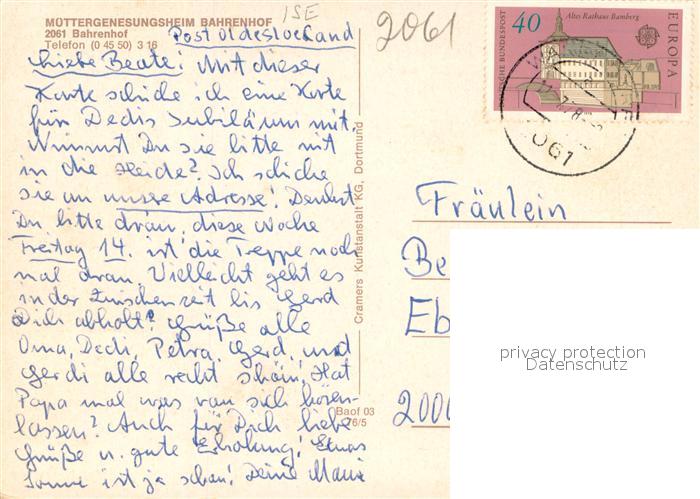 MÜTTERGENESUNGSHEIM BAHRENHOF
2061 Bahrenhof
Telefon (0 45 50) 3 16
Post Oldesloe Land
ISE
2061
Liebe Beate! Mit dieser
Karte schicke ich eine Karte
für Dedis Jubiläum mit.
Nimmst Du sie bitte mit
in die Heide? Ich schicke
sie an unsre Adresse! Denkst
Du bitte dran, diese Woche
Freitag 14. ist die Treppe noch
mal dran. Vielleicht geht es
in der Zwischenzeit bis Gerd
Dich abholt? Grüße alle
Oma, Dedi, Petra, Gerd, und
Gerdi alle recht schön! Hat
Papa mal was von sich hören-
lassen? Auch für Dich liebe
Grüße u. gute Erholung! Etwas
Sonne ist ja schon! Deine Mami
Cramers Kunstanstalt KG, Dortmund
Baof 03
76/5
DEUTSCHE BUNDESPOST
40
Altes Rathaus Bamberg
EUROPA
2061
Fräulein
Be
Eb
2000
privacy protection
Datenschutz